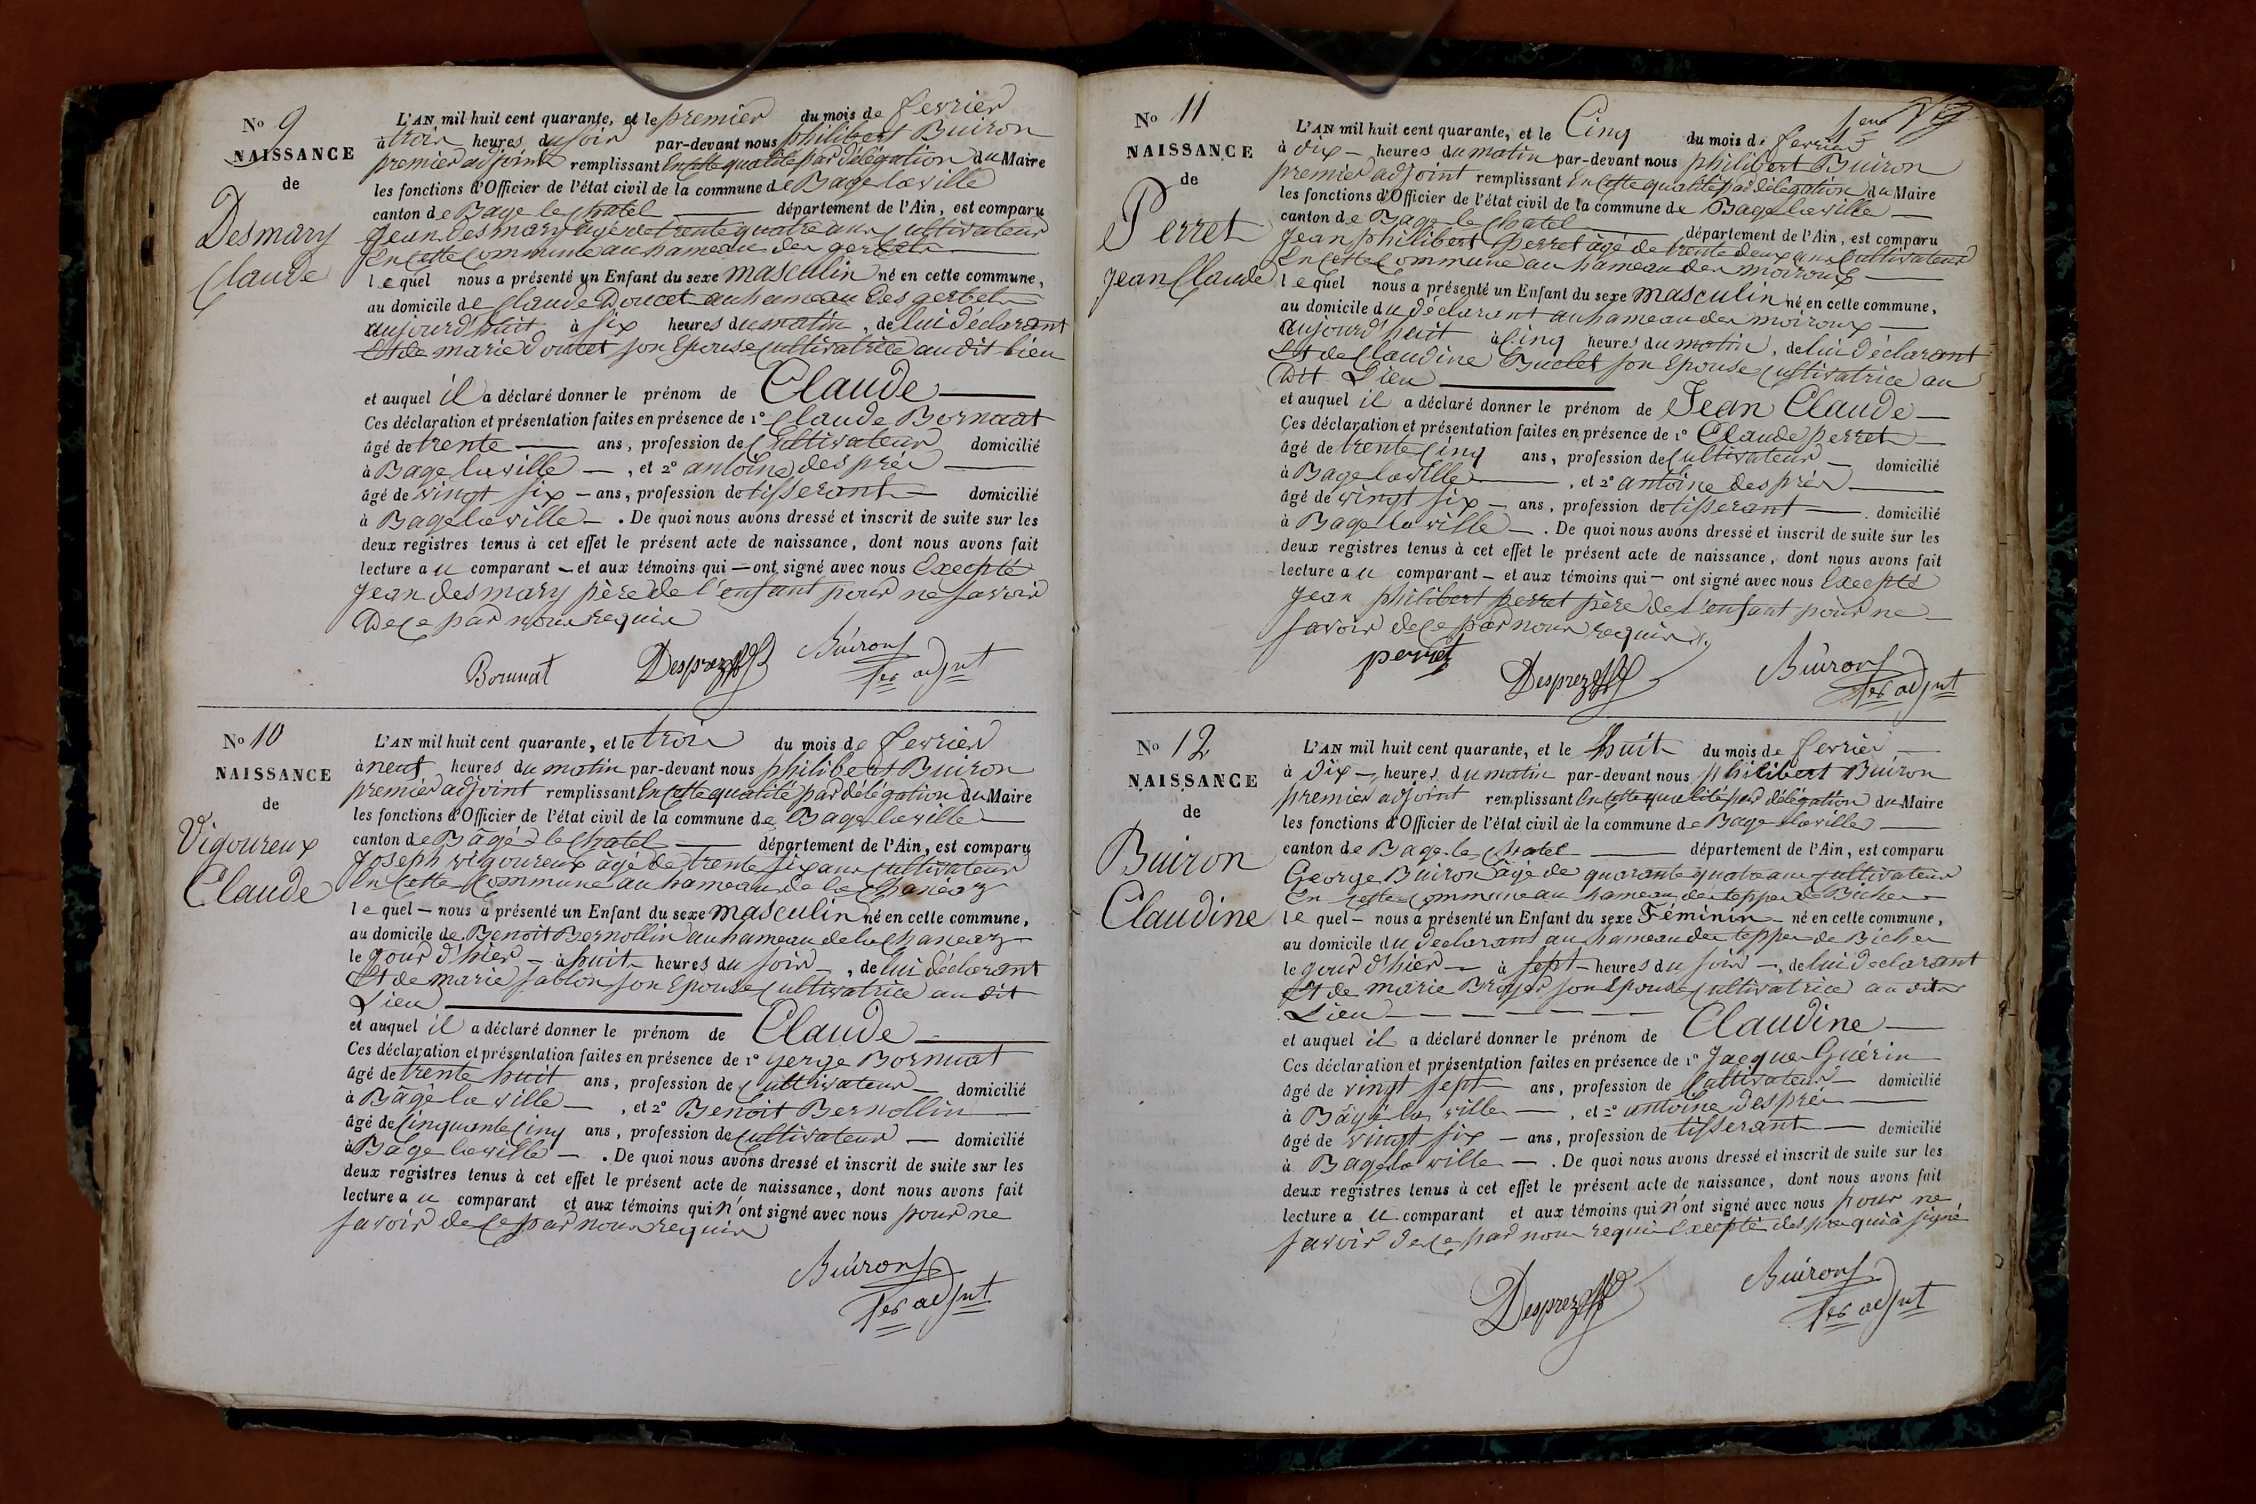 No 9
NAISSANCE
de
Desmary
Claude
L'AN mil huit cent quarante, et le premier du mois de fevrier
à trois heures du soir par-devant nous philibert Buiron
premier adjoint remplissant En cette qualité par délégation du Maire
les fonctions d'Officier de l'état civil de la commune de Bagé la ville
canton de Bagé le Chatel département de l'Ain, est comparu
Jean Desmary âgé de trente quatre ans Cultivateur
En cette Commune au hameau des gerbets
lequel nous a présenté un Enfant du sexe masculin né en cette commune,
au domicile de Claude Doucet au hameau des gerbets
aujourd'huit à six heures du matin, de lui déclarant
Et de marie doucet son Epouse Cultivatrice au dit lieu
et auquel il a déclaré donner le prénom de Claude
Ces déclaration et présentation faites en présence de 1° Claude Bornuat
âgé de trente ans, profession de Cultivateur domicilié
à Bagé la ville, et 2° antoine després
âgé de vingt six ans, profession de tisserant domicilié
à Bagé la ville. De quoi nous avons dressé et inscrit de suite sur les
deux registres tenus à cet effet le présent acte de naissance, dont nous avons fait
lecture au comparant et aux témoins qui ont signé avec nous Excepté
Jean desmary père de l'enfant pour ne savoir
De ce par nous requis
Bornuat Desprez Buiron
1er adjnt
No 10
NAISSANCE
de
Vigoureux
Claude
L'AN mil huit cent quarante, et le trois du mois de fevrier
à neuf heures du matin par-devant nous philibert Buiron
premier adjoint remplissant En cette qualité par délégation du Maire
les fonctions d'Officier de l'état civil de la commune de Bagé la ville
canton de Bâgé le Chatel département de l'Ain, est comparu
Joseph vigoureux âgé de trente six ans cultivateur
En Cette Commune au hameau de la Chanéaz
lequel nous a présenté un Enfant du sexe masculin né en cette commune,
au domicile de Benoit Bernollin au hameau de la Chanéaz
le jour d'hier à huit heures du soir, de lui déclarant
Et de marie sablon son Epouse Cultivatrice au dit
Lieu
et auquel il a déclaré donner le prénom de Claude
Ces déclaration et présentation faites en présence de 1° gerge Bornuat
âgé de trente huit ans, profession de Cultivateur domicilié
à Bâgé la ville, et 2° Benoit Bernollin
âgé de Cinquante Cinq ans, profession de Cultivateur domicilié
à Bagé la ville. De quoi nous avons dressé et inscrit de suite sur les
deux registres tenus à cet effet le présent acte de naissance, dont nous avons fait
lecture au comparant et aux témoins qui n'ont signé avec nous pour ne
savoir de ce par nous requis
Buiron
1er adjnt
No 11
NAISSANCE
de
Perret
Jean Claude
L'AN mil huit cent quarante, et le Cinq du mois de fevrier
à Dix heures du matin par-devant nous philibert Buiron
premier adjoint remplissant En Cette qualité par délégation du Maire
les fonctions d'Officier de l'état civil de la commune de Bagé la ville
canton de Bagé le Chatel département de l'Ain, est comparu
Jean philibert Perret âgé de trente deux ans Cultivateur
En Cette Commune au hameau des moiroux
lequel nous a présenté un Enfant du sexe masculin né en cette commune,
au domicile du déclarant au hameau des moiroux
aujourd'huit à Cinq heures du matin, de lui déclarant
Et de Claudine Buclet son Epouse Cultivatrice au
Dit Lieu
et auquel il a déclaré donner le prénom de Jean Claude
Ces déclaration et présentation faites en présence de 1° Claude perret
âgé de trente Cinq ans, profession de Cultivateur domicilié
à Bagé la ville, et 2° antoine després
âgé de vingt six ans, profession de tisserant domicilié
à Bagé la ville. De quoi nous avons dressé et inscrit de suite sur les
deux registres tenus à cet effet le présent acte de naissance, dont nous avons fait
lecture au comparant et aux témoins qui ont signé avec nous Excepté
Jean philibert perret père de l'enfant pour ne
savoir de ce par nous requis
perret Desprez Buiron
1er adjnt
No 12
NAISSANCE
de
Buiron
Claudine
L'AN mil huit cent quarante, et le huit du mois de fevrier
à Dix heures du matin par-devant nous philibert Buiron
premier adjoint remplissant En Cette qualité par délégation du Maire
les fonctions d'Officier de l'état civil de la commune de Bagé la ville
canton de Bagé le Chatel département de l'Ain, est comparu
George Buiron âgé de quarante quatre ans Cultivateur
En cette commune au hameau des teppes de Biches
lequel nous a présenté un Enfant du sexe Féminin né en cette commune,
au domicile du déclarant au hameau des teppes de Biches
le jour d'hier à sept heures du soir, de lui Déclarant
Et de marie Broyer son Epouse Cultivatrice au dit
Lieu
et auquel il a déclaré donner le prénom de Claudine
Ces déclaration et présentation faites en présence de 1° Jacque Guérin
âgé de vingt sept ans, profession de Cultivateur domicilié
à Bâgé la ville, et 2° antoine després
âgé de vingt six ans, profession de tisserant domicilié
à Bagé la ville. De quoi nous avons dressé et inscrit de suite sur les
deux registres tenus à cet effet le présent acte de naissance, dont nous avons fait
lecture au comparant et aux témoins qui n'ont signé avec nous pour ne
savoir de ce par nous requis Excepté després qui à signé
Desprez Buiron
1er adjnt